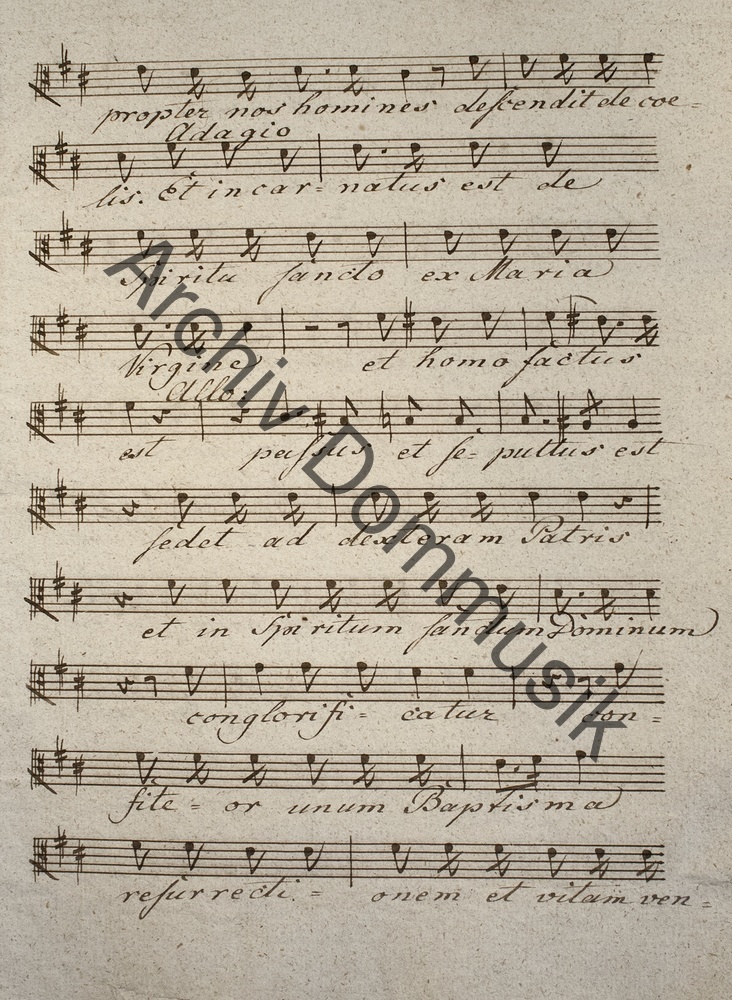 propter nos homines deſcendit de coe-
Adagio
lis. Et incar- natus est de
Spiritu ſancto ex Maria
Virgine et homo factus
Allo:
est paſsus et ſe- pultus est
ſedet ad dexteram Patris
et in Spiritum ſanctum Dominum
conglorifi- catur con-
fite- or unum Baptisma
reſurrecti- onem et vitam ven-
Archiv Dommusik